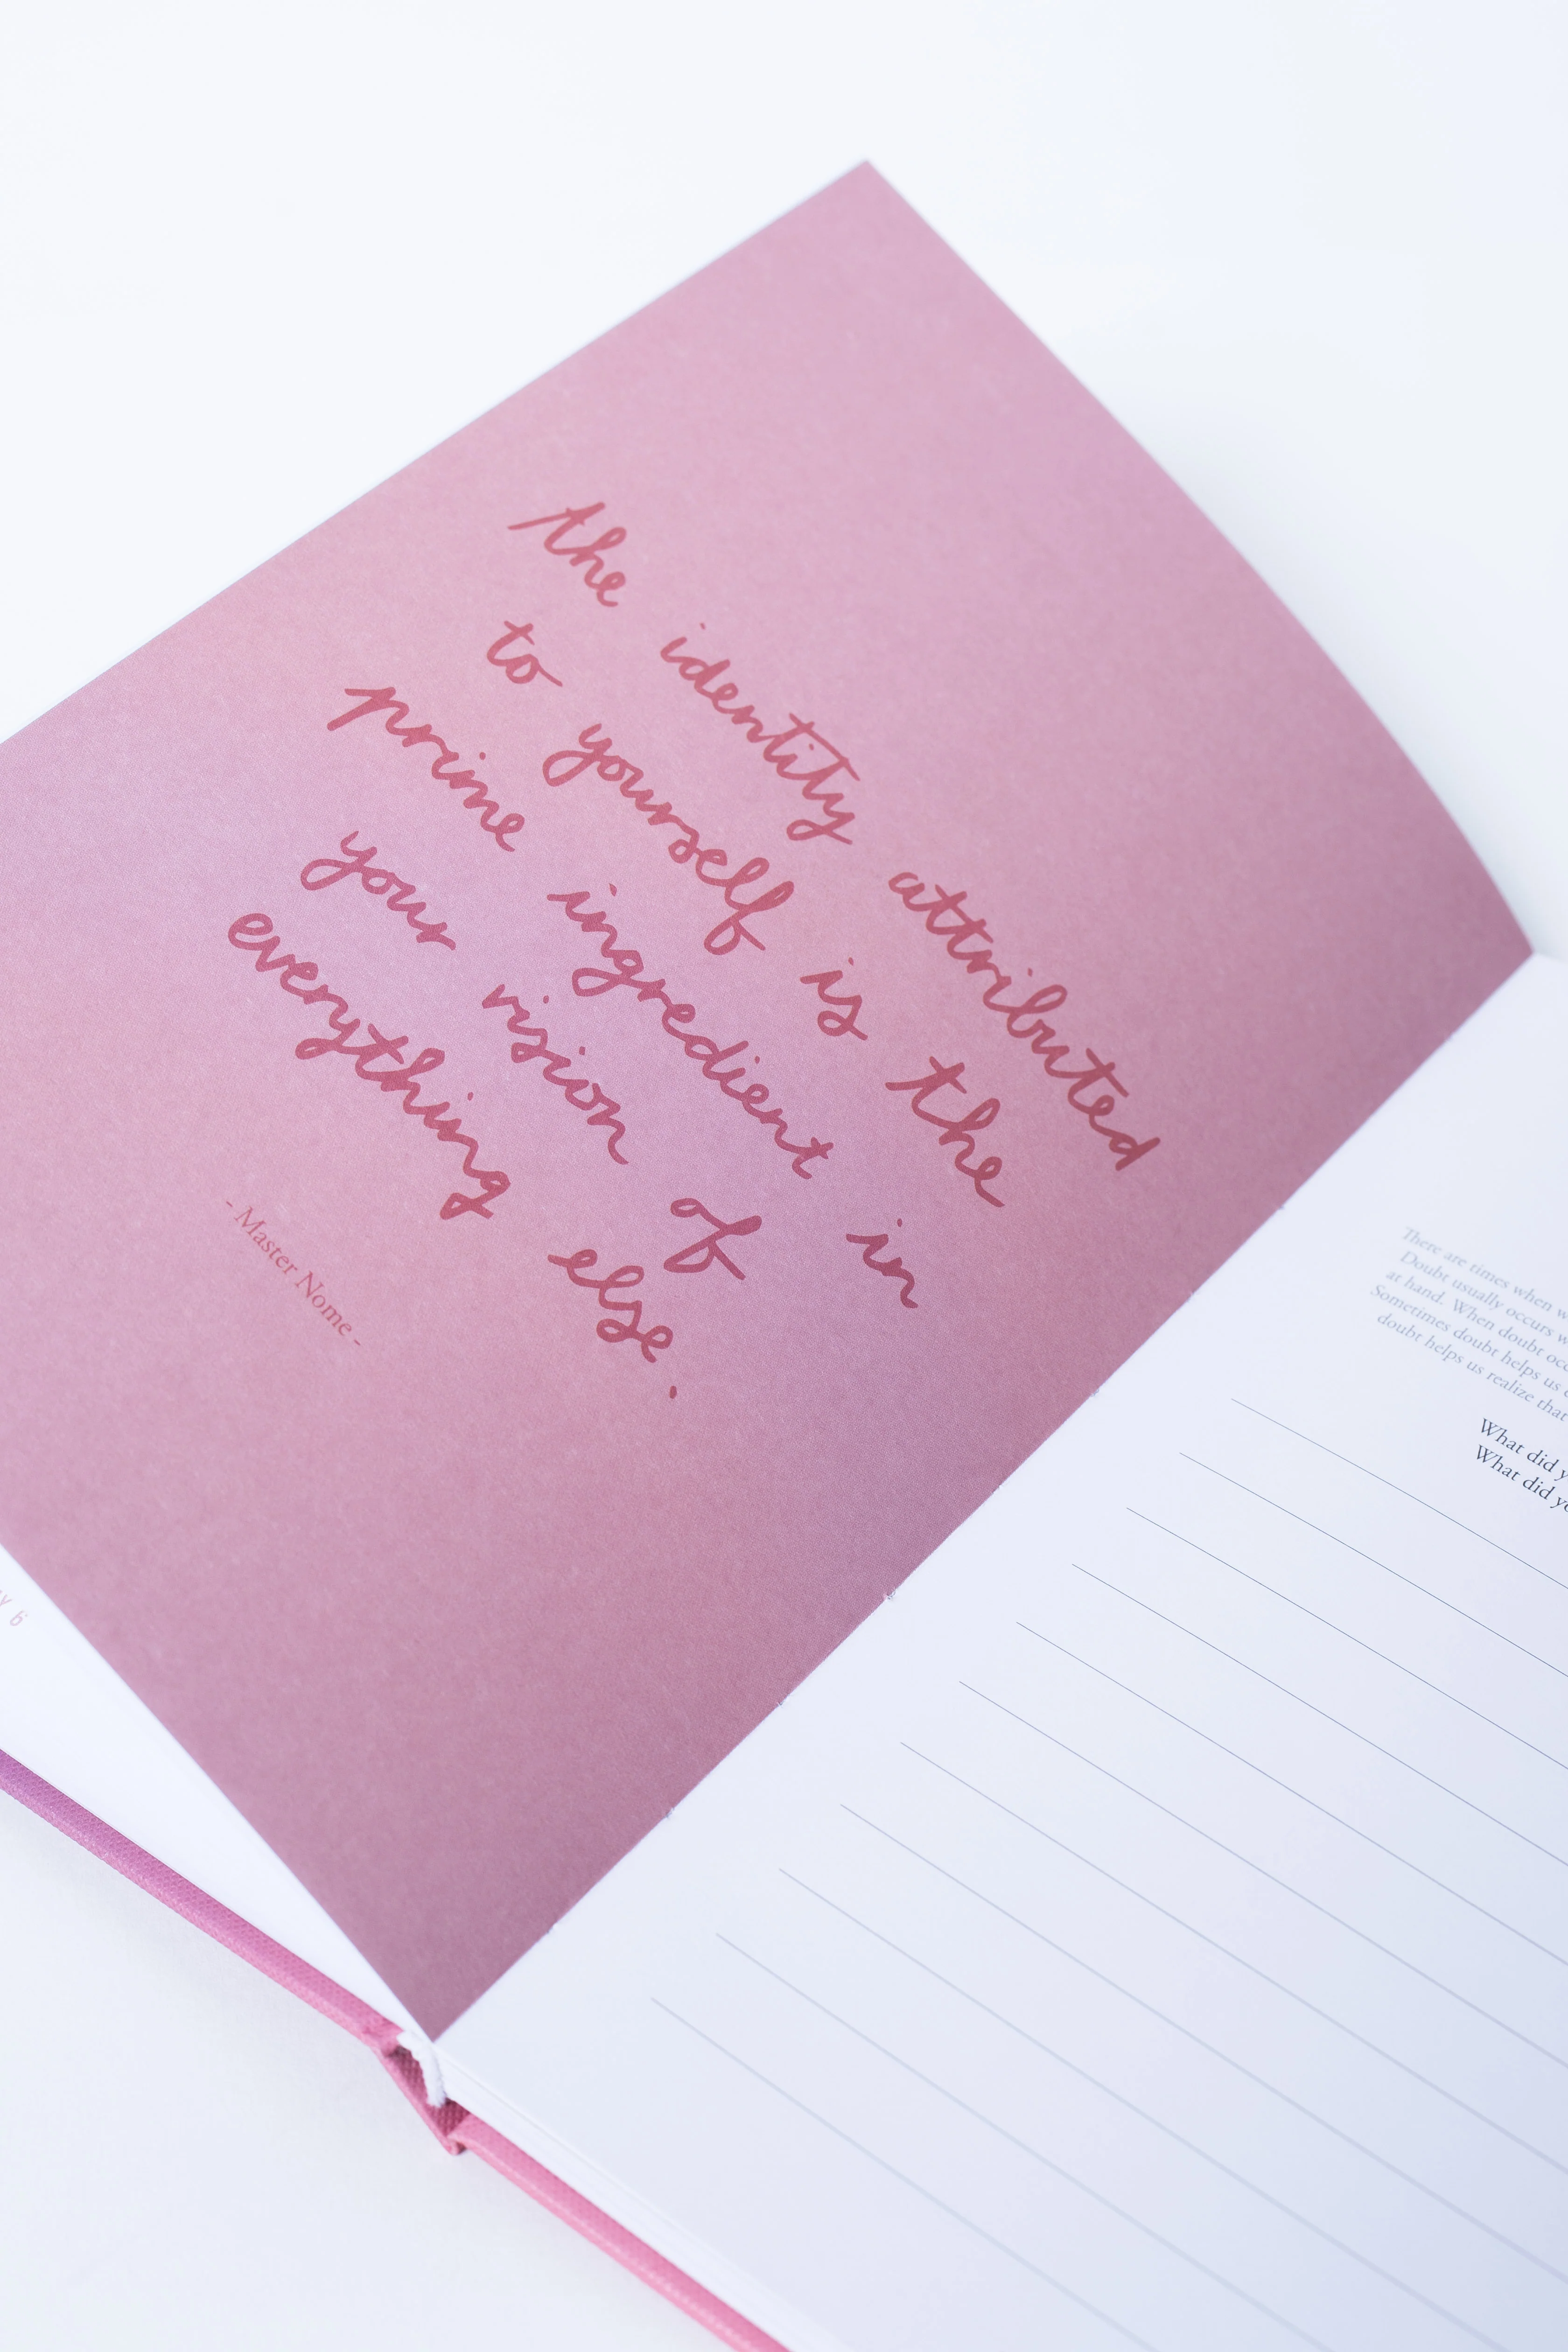 the identity attributed
to yourself is the
prime ingredient in
your vision of
everything else.
- Master Nome -
There are times when
Doubt usually occurs
at hand. When doubt
Sometimes doubt helps us
doubt helps us realize that
What did
What did
6